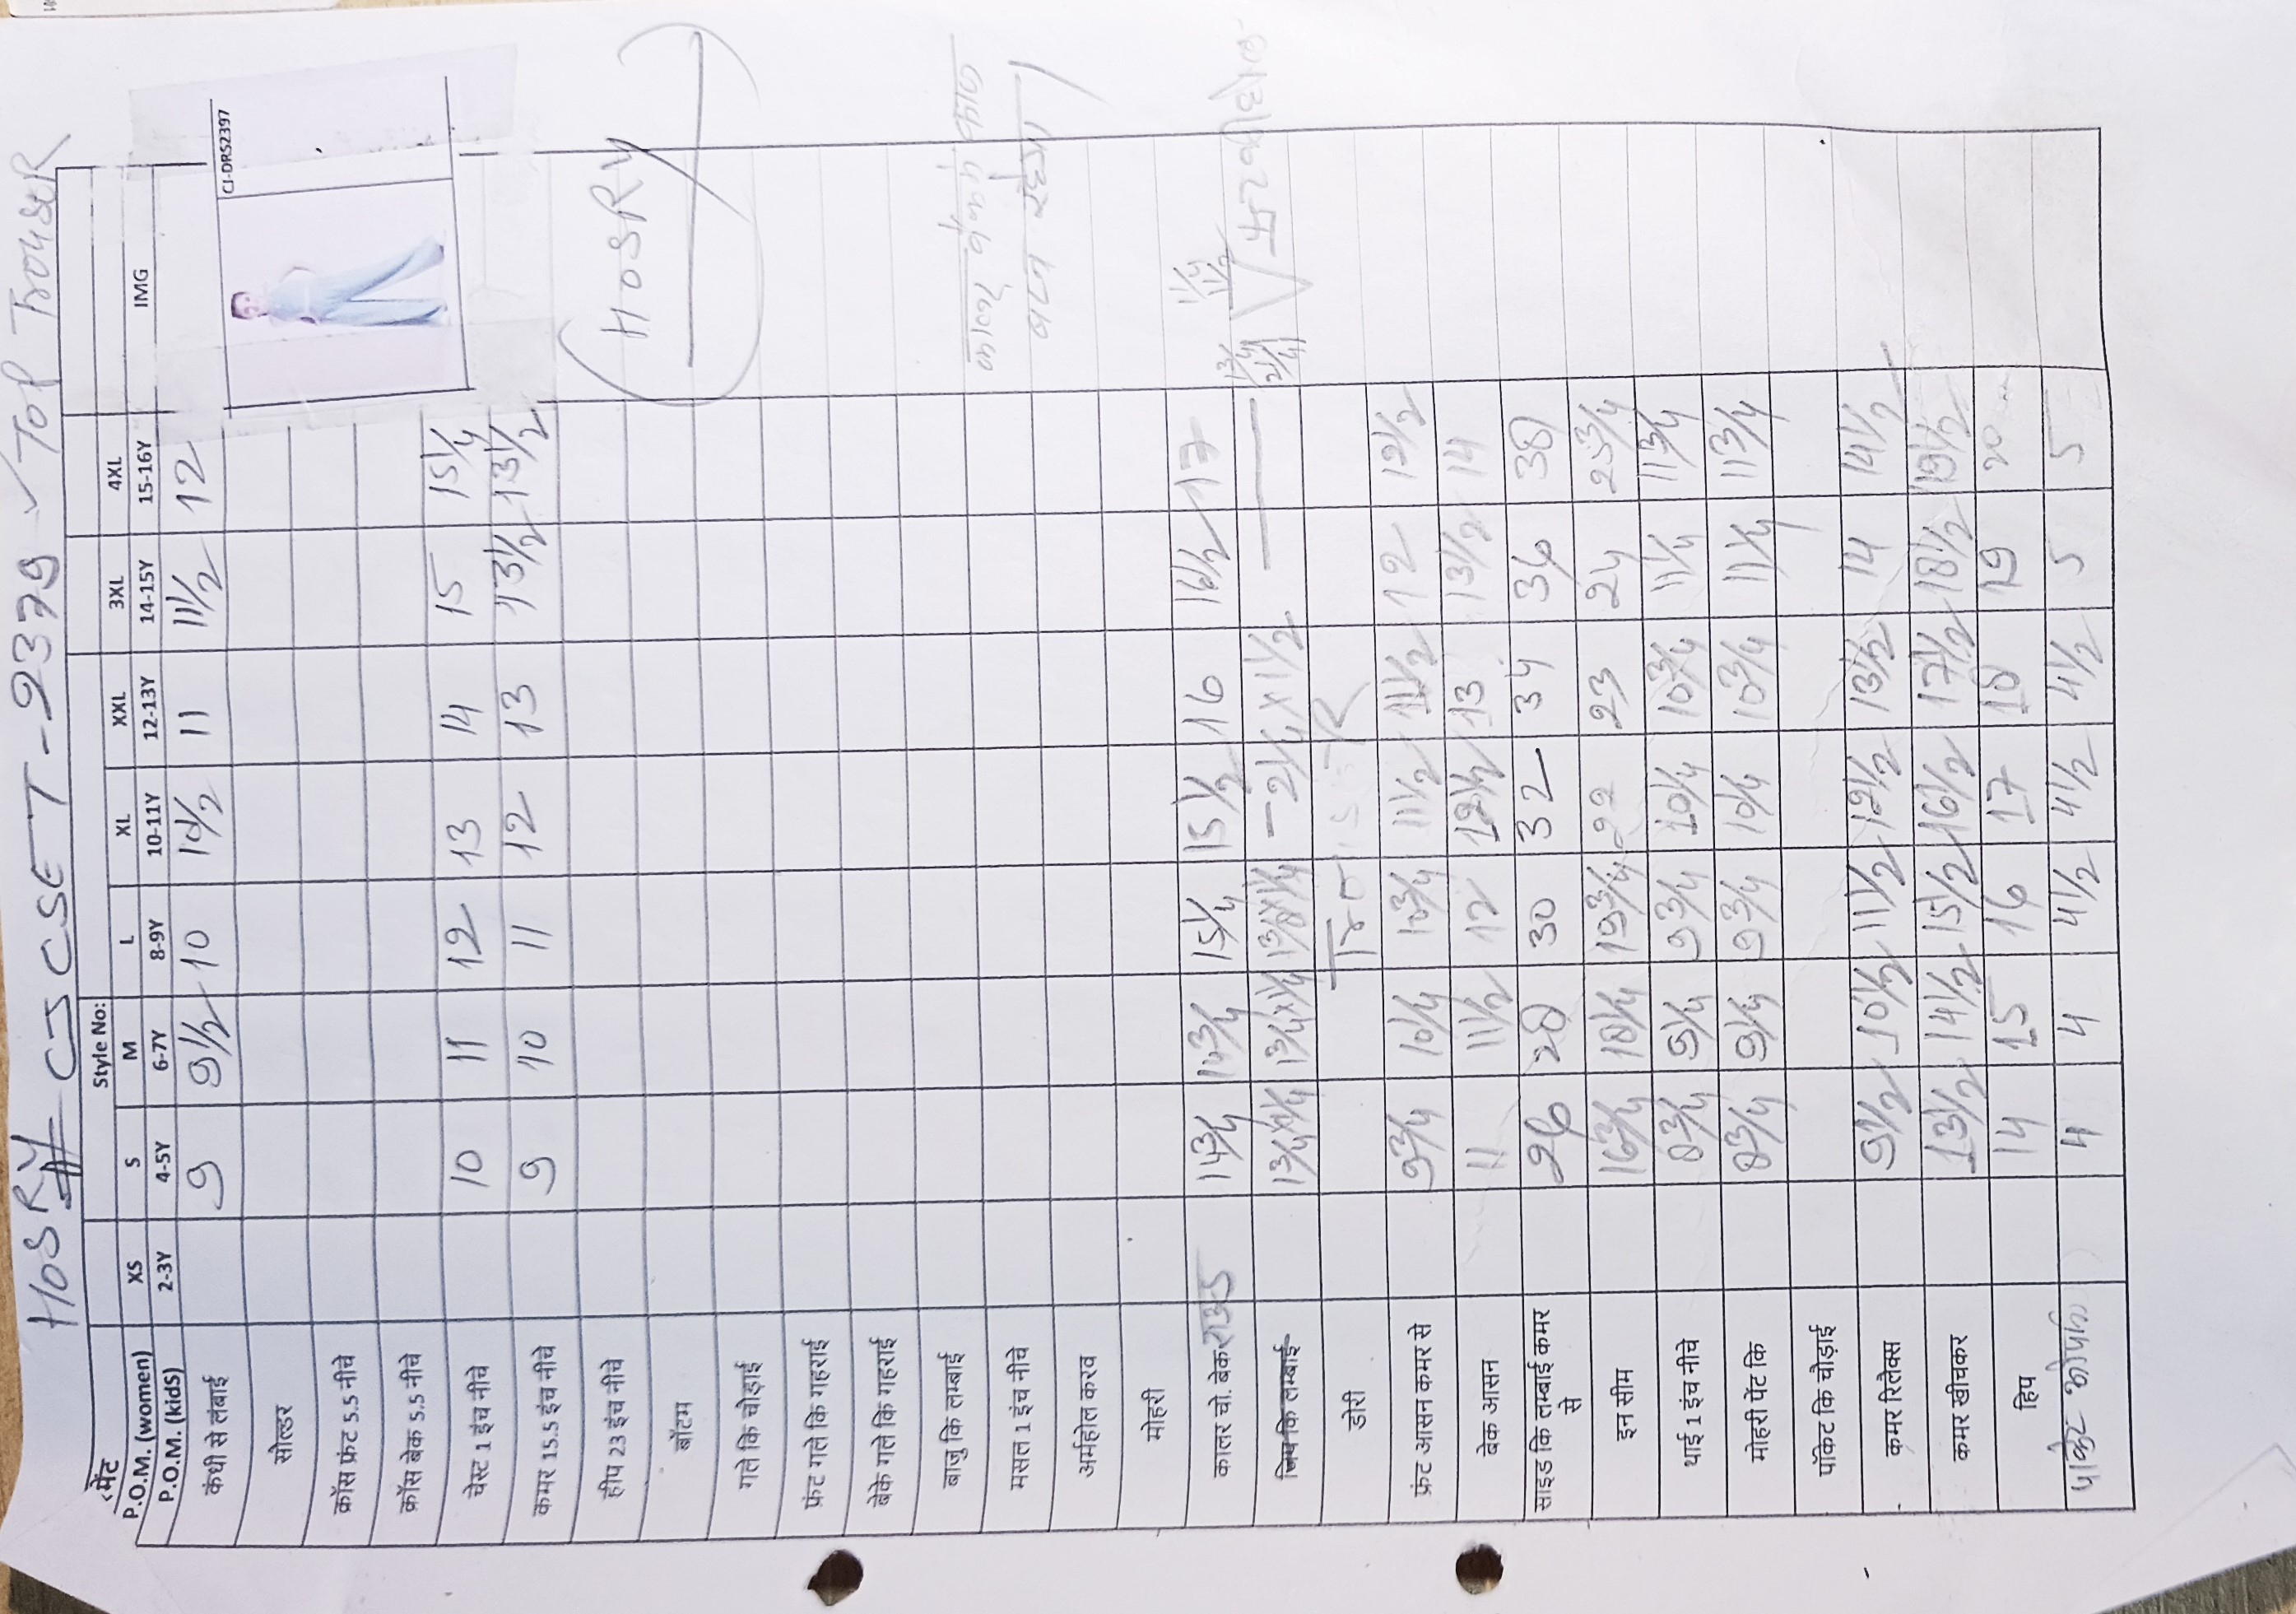 HOSRY # CJ CSET-2379 ✓ TOP TrouseR
Style No:
मेंट
P.O.M. (women) XS S M L XL XXL 3XL 4XL
P.O.M. (kidS) 2-3Y 4-5Y 6-7Y 8-9Y 10-11Y 12-13Y 14-15Y 15-16Y IMG
कंधी से लंबाई 9 9 1/2 10 10 1/2 11 11 1/2 12
CJ-DRS2397
सोल्डर
क्रॉस फ्रंट 5.5 नीचे
क्रॉस बेक 5.5 नीचे
चेस्ट 1 इंच नीचे 10 11 12 13 14 15 15 1/4
कमर 15.5 इंच नीचे 9 10 11 12 13 13 1/2 13 1/2
हीप 23 इंच नीचे
HOSRY
बॉटम
गले कि चोड़ाई
फ्रंट गले कि गहराई
बेके गले कि गहराई
बाजु कि लम्बाई
मसल 1 इंच नीचे
अर्महोल करव
मोहरी
कालर चो. बेक राउंड 14 3/4 14 3/4 15 1/4 15 1/2 16 16 1/2 17
जिप कि लम्बाई 1 3/4 x 1/4 1 3/4 x 1/4 2 1/4 x 1 1/2
डोरी TrouseR
फ्रंट आसन कमर से 9 3/4 10 1/4 10 3/4 11 1/2 11 1/2 12 12 1/2
बेक आसन 11 11 1/2 12 12 1/2 13 13 1/2 14
साइड कि लम्बाई कमर से 26 28 30 32 34 36 38
इन सीम 16 3/4 18 1/4 19 3/4 22 23 24 25 3/4
थाई 1 इंच नीचे 8 3/4 9 1/4 9 3/4 10 1/4 10 3/4 11 1/4 11 3/4
मोहरी पेंट कि 8 3/4 9 1/4 9 3/4 10 1/4 10 3/4 11 1/4 11 3/4
पॉकेट कि चौड़ाई
कमर रिलेक्स 9 1/2 10 1/2 11 1/2 12 1/2 13 1/2 14 14 1/2
कमर खीचकर 13 1/2 14 1/2 15 1/2 16 1/2 17 1/2 18 1/2 19 1/2
हिप 14 15 16 17 18 19 20
पाकेट 4 4 4 1/2 4 1/2 4 1/2 5 5